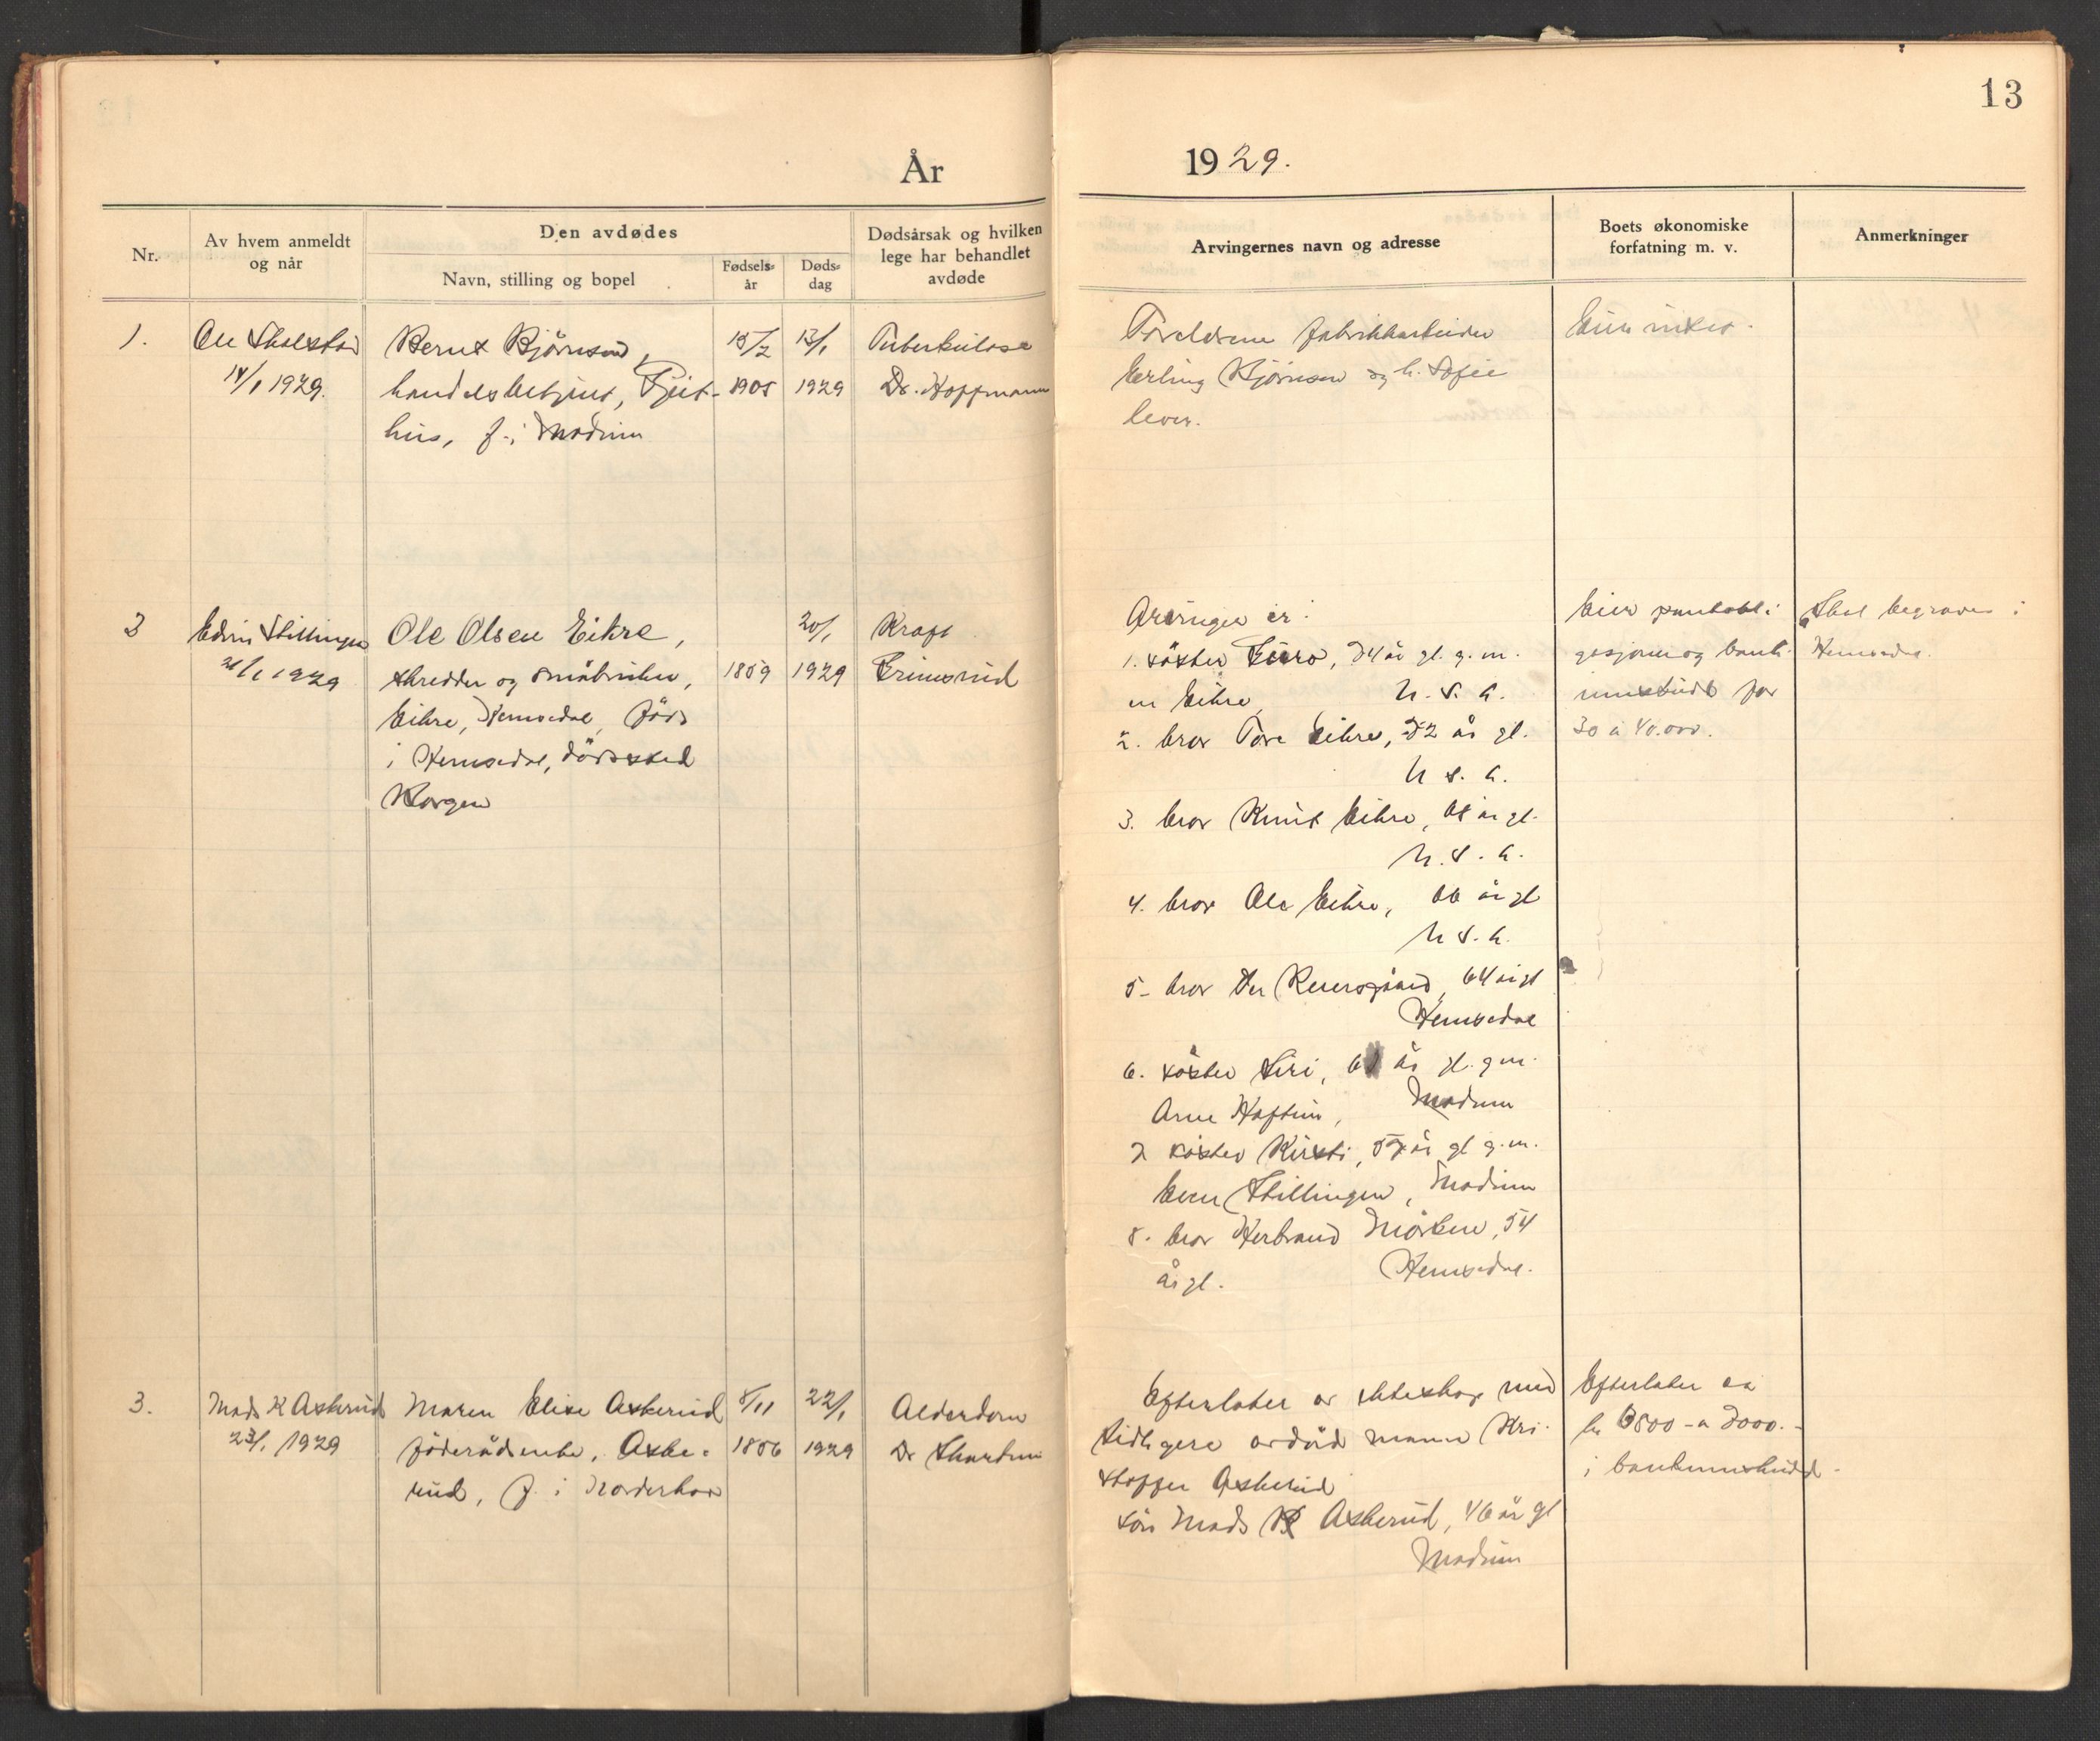 13
År
1929.
Nr.
Av hvem anmeldt
og når
Den avdødes
Navn, stilling og bopel
Fødsels-
år
Døds-
dag
Dødsårsak og hvilken
lege har behandlet
avdøde
Arvingernes navn og adresse
Boets økonomiske
forfatning m. v.
Anmerkninger
1.
Ole Skalstad
14/1 1929.
Bernt Björnsen,
handelsbetjent, Gjeit-
hus, f. i Modum
15/2
1905
13/1
1929
Tuberkulose
Dr. Hoffmann
Foreldrene fabrikkarbeider
Erling Björnsen og h. Sofie
lever.
Eier intet.
2
Edvin Skillingen
21/1 1929
Ole Olsen Eikre,
skredder og småbruker,
Eikre, Hemsedal, född
i Hemsedal, dödssted
Korgen
1859
20/1
1929
Kraft
Grimsrud
Arvinger er:
1. söster Guro, 74 år gl. g. m.
en Eikre, U. S. A.
2. bror Tore Eikre, 72 år gl.
U. S. A.
3. bror Knut Eikre, 68 år gl.
U. S. A.
4. bror Ole Eikre, 66 år gl
U. S. A.
5. bror Per Reiersgård, 64 år gl
Hemsedal
6. söster Siri, år gl. g. m.
Arne Haftun, Modum
7 söster Kirsti, 57 år gl g. m.
Even Skillingen, Modum
8. bror Herbrand Mörken, 54
år gl. Hemsedal.
Eier pantobli-
gasjoner og bank-
innskudd for
30 à 40.000.
Skal begraves i
Hemsedal.
3.
Mads K Askerud
23/1 1929
Maren Elise Askerud
föderådsenke, Aske-
rud, f. i Norderhov
8/11
1856
22/1
1929
Alderdom
Dr Skartum
Efterlater av ekteskap med
tidligere avdöd mann Kri-
stoffer Askerud
sön Mads K Askerud, 46 år gl
Modum
Efterlater ca
kr 6500 - a 7000.-
i bankinnskudd.